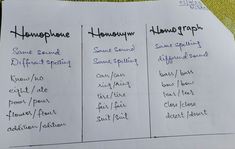 Homophone
Same sound
Different spelling
Know/no
eight/ate
poor/pour
flower/flour
addition/edition
Homonym
Same Sound
Same spelling
Can/can
ring/ring
tire/tire
fair/fair
Suit/suit
Homograph
Same spelling
different sound
bass/bass
bow/bow
tear/tear
Close/close
desert/desert